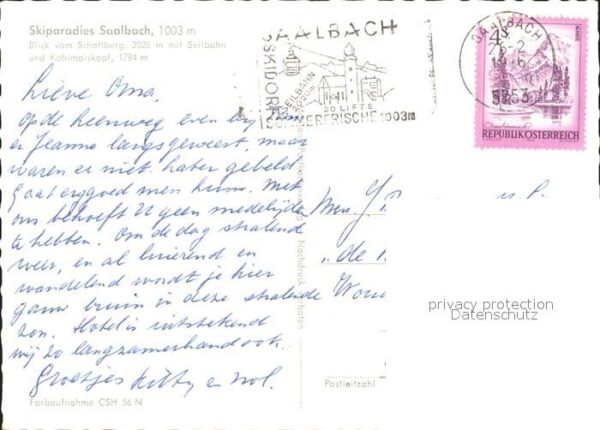 Skiparadies Saalbach, 1003 m
Blick vom Schattberg, 2020 m mit Seilbahn
und Kohlmaiskopf, 1794 m
Lieve Oma.
Op de heenweg even by
en Jeanne langs geweest, maar
waren er niet. later gebeld
Gaat erg goed men hun. Met
ons behoeft U geen medelijden
te hebben. Om de dag stralend
weer, en al luierend en
wandelend wordt je hier
gauw bruin in deze stralende
zon. Hotel is uitstekend
wij zo langzamerhand ook.
Groetjes Kitty en Nol.
Farbaufnahme CSH 56 N
Nachdruck verboten
SAALBACH
SKIDORF
SEILBAHN
20 LIFTE
SOMMERFRISCHE 1003m
SAALBACH
5753
4S
REPUBLIK ÖSTERREICH
Mevr.
u. P.
de
Postleitzahl
privacy protection
Datenschutz